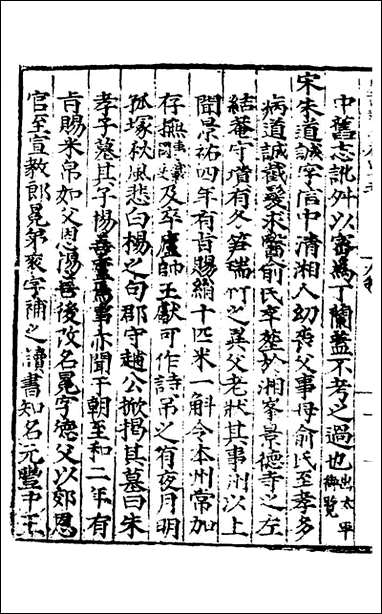 中舊志訛舛以齊為丁蘭蓋不考之過也出太平御覽
宋朱道誠字信中清湘人幼喪父事母俞氏至孝多
病道誠截髮求醫俞氏卒塟於湘峯景德寺之左
結菴守墳有冬笋瑞竹之異父老狀其事洲以上
聞景祐四年有旨賜絹十匹米一斛令本州常加
存撫及卒盧帥王獻可作詩吊之有夜月明
孤塚秋風悲白楊之句郡守趙公揿揭其墓曰朱
孝子墓其子惕亦聞于朝至和二年有
旨賜米帛如父恩惕後改名冕字德父以郊恩
官至宣教郎冕弟褒字補之讀書知名元豐中王